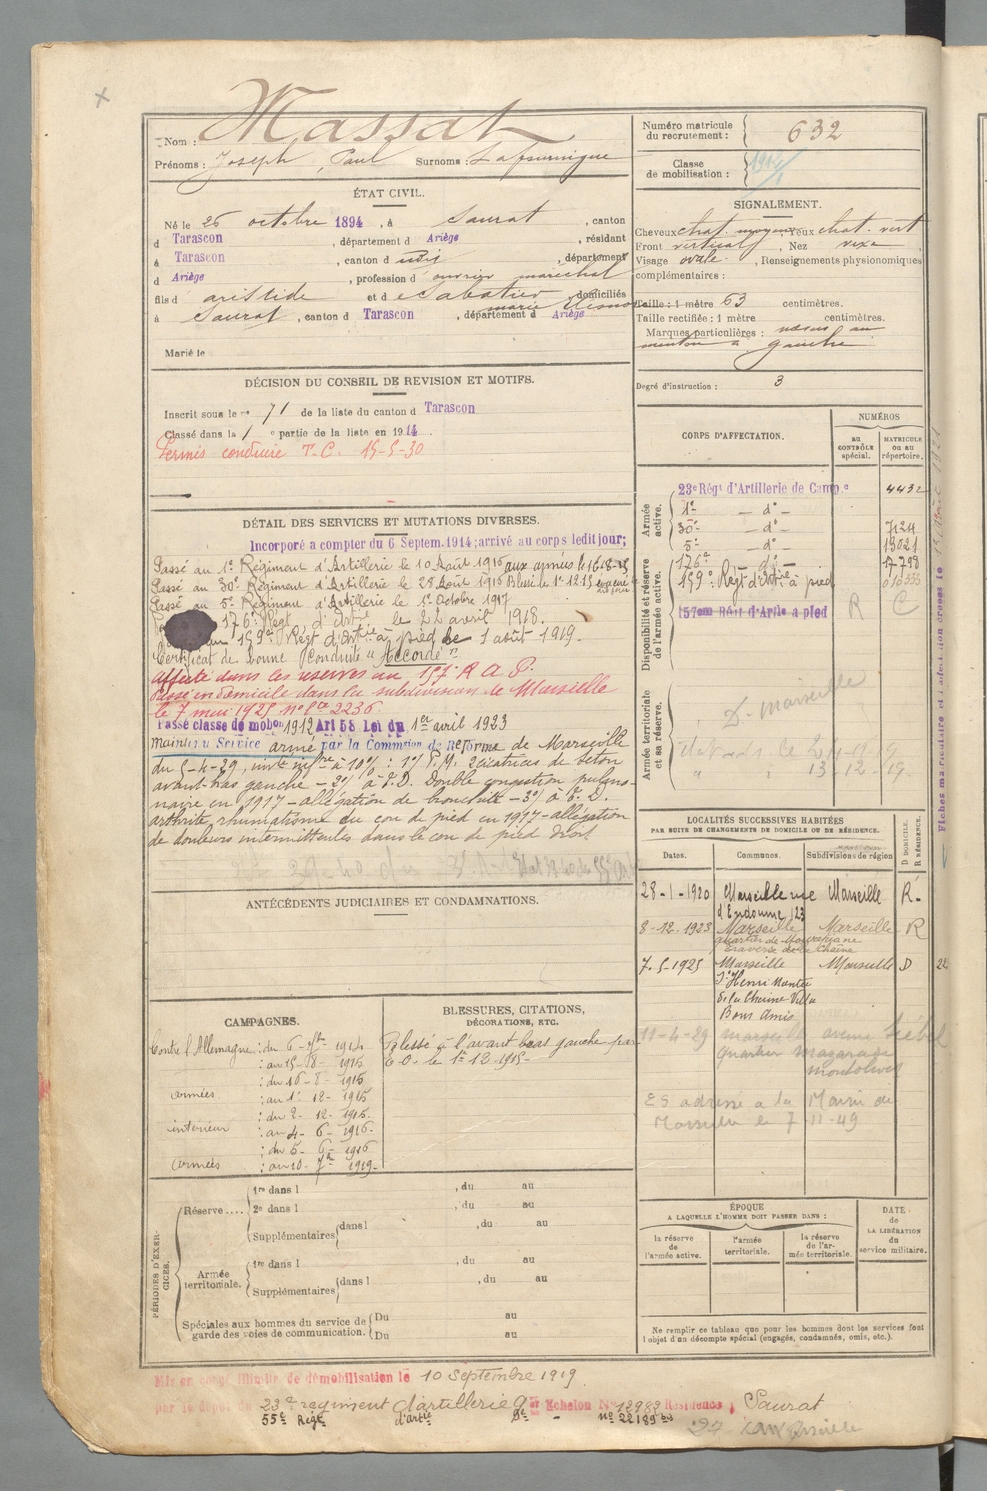 Massat
Nom :
Prénoms : Joseph Paul Surnoms :
ÉTAT CIVIL.
Né le 26 octobre 1894, à Saurat, canton
d Tarascon, département d Ariège, résidant
à Tarascon, canton d udit, département
d Ariège, profession d ouvrier maréchal
fils d aristide et d e Sabatier marie, domiciliés
à Saurat, canton d Tarascon, département d Ariège
Marié le
DÉCISION DU CONSEIL DE REVISION ET MOTIFS.
Inscrit sous le n° 71 de la liste du canton d Tarascon
Classé dans la 1e partie de la liste en 1914
Permis conduire T.C. 15-5-30
DÉTAIL DES SERVICES ET MUTATIONS DIVERSES.
Incorporé a compter du 6 Septem. 1914; arrivé au corps ledit jour;
Passé au 1er Régiment d'Artillerie le 10 Août 1915 aux armées le 16-8-15
Passé au 30e Régiment d'Artillerie le 28 Août 1915 Blessé le 1er 12.15
Passé au 5e Régiment d'Artillerie le 1er Octobre 1917
176e Régt d'Artie le 22 avril 1918.
159e Régt d'Artie à pied le 1 août 1919.
Certificat de bonne Conduite "Accordé"
affecté dans les réserves au 157e R A P.
Passé en domicile dans la subdivision de Marseille
le 7 mai 1925 n° 2236
Passé classe de mobon 1912 Art 58 Loi du 1er avril 1923
Maintenu Service armé par la Commson de Réforme de Marseille
du 5-4-29, invté infre à 10% : 1°/ P.M. 2 cicatrices de séton
avant-bras gauche - 2°/ à E.D. Double congestion pulmo-
naire en 1917 - allégation de bronchite - 3°/ à E.D.
arthrite rhumatisme du cou de pied en 1917 - allégation
de douleurs intermittentes dans le cou de pied droit
ANTÉCÉDENTS JUDICIAIRES ET CONDAMNATIONS.
CAMPAGNES.
Contre l'Allemagne : du 6 - 7bre - 1914
: au 15 - 8 - 1915
: du 16 - 8 - 1915
armées : au 1er - 12 - 1915
: du 2 - 12 - 1915.
intérieur : au 4 - 6 - 1916
: du 5 - 6 - 1916
armées : au 10 - 7bre 1919.
BLESSURES, CITATIONS,
DÉCORATIONS, ETC.
Blessé à l'avant bras gauche par
E.O. le 1er 12 1915
PÉRIODES D'EXER-
CICES.
Réserve ....
1re dans l , du au
2e dans l , du au
Supplémentaires dans l , du au
Armée
territoriale.
1re dans l , du au
Supplémentaires dans l , du au
Spéciales aux hommes du service de
garde des voies de communication.
Du au
Du au
Numéro matricule
du recrutement : 632
Classe
de mobilisation :
SIGNALEMENT.
Cheveux chat. moyen Yeux chat. vert
Front vertical, Nez
Visage ovale, Renseignements physionomiques
complémentaires :
Taille : 1 mètre 63 centimètres.
Taille rectifiée : 1 mètre centimètres.
Marques particulières : nœvus au
menton à gauche
Degré d'instruction : 3
CORPS D'AFFECTATION.
NUMÉROS
AU
CONTRÔLE
spécial.
MATRICULE
OU AU
répertoire.
Armée
active.
23e Régt d'Artillerie de Camp.e 4432
1er - do -
30e - do - 7124
5e - do - 13021
176e - do - 17798
159e Régt d'Artie à pied
157eme Régt d'Artie a pied R C
Disponibilité et réserve
de l'armée active.
Armée territoriale
et sa réserve.
D. Marseille
13-12-19.
LOCALITÉS SUCCESSIVES HABITÉES
PAR SUITE DE CHANGEMENTS DE DOMICILE OU DE RÉSIDENCE.
Dates. Communes. Subdivisions de région
D DOMICILE.
R RÉSIDENCE.
28-1-1920 Marseille rue Marseille R.
d'Endoume 123
8-12-1923 Marseille Marseille R
7.5-1925 Marseille Marseille D
St Henri
de la Chaine Villa
Bons Amis
11-4-29 Marseille avenue
quartier
montolivet
ES adresse a la Mairie de
Marseille le 7-11-49
ÉPOQUE
A LAQUELLE L'HOMME DOIT PASSER DANS :
la réserve
de
l'armée active.
l'armée
territoriale.
la réserve
de l'ar-
mée territoriale.
DATE
de
LA LIBÉRATION
du
service militaire.
Ne remplir ce tableau que pour les hommes dont les services font
l'objet d'un décompte spécial (engagés, condamnés, omis, etc.).
Mis en congé illimité de démobilisation le 10 Septembre 1919.
par le dépôt du 23e régiment d'artillerie 9e Echelon N° 12983 Résidence : Saurat
55e Régt d'artie 9e - n° 22189 bis